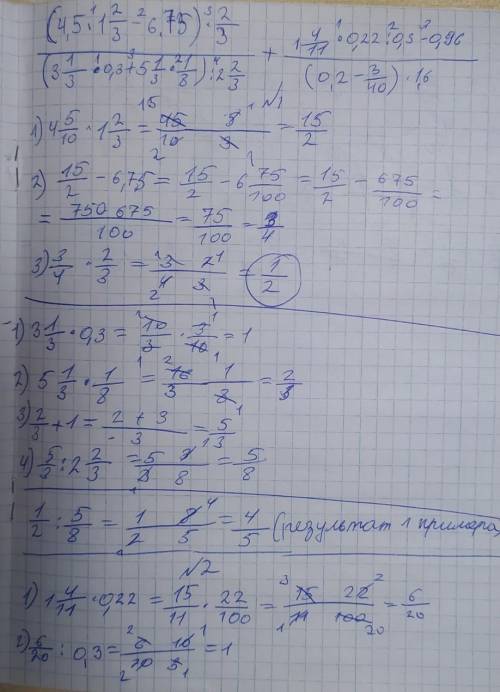 (4,5 · 1 2/3 - 6,75) · 2/3 / (3 1/3 · 0,3 + 5 1/3 · 1/8) : 2 2/3 + 1 4/11 · 0,22 : 0,3 - 0,96 / (0,2 - 3/40) · 1,6
№1
1) 4 5/10 · 1 2/3 = 45/10 · 5/3 = 15/2
2) 15/2 - 6,75 = 15/2 - 6 75/100 = 15/2 - 675/100 =
= 750 675/100 = 75/100 = 3/4
3) 3/4 · 2/3 = 3/4 2/3 = 1/2
1) 3 1/3 · 0,3 = 10/3 · 3/10 = 1
2) 5 1/3 · 1/8 = 16/3 1/8 = 2/3
3) 2/3 + 1 = 2 + 3/3 = 5/3
4) 5/3 : 2 2/3 = 5/3 3/8 = 5/8
1/2 : 5/8 = 1/2 8/5 = 4/5 (результат 1 примера)
№2
1) 1 4/11 · 0,22 = 15/11 · 22/100 = 15/11 22/100 = 6/20
2) 6/20 : 0,3 = 6/20 10/3 = 1